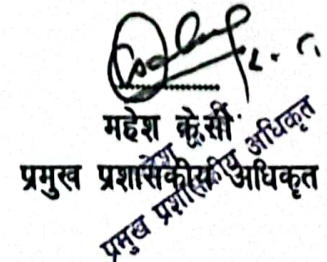 महेश के.सी.
प्रमुख प्रशासकीय अधिकृत
प्रमुख प्रशासकीय अधिकृत